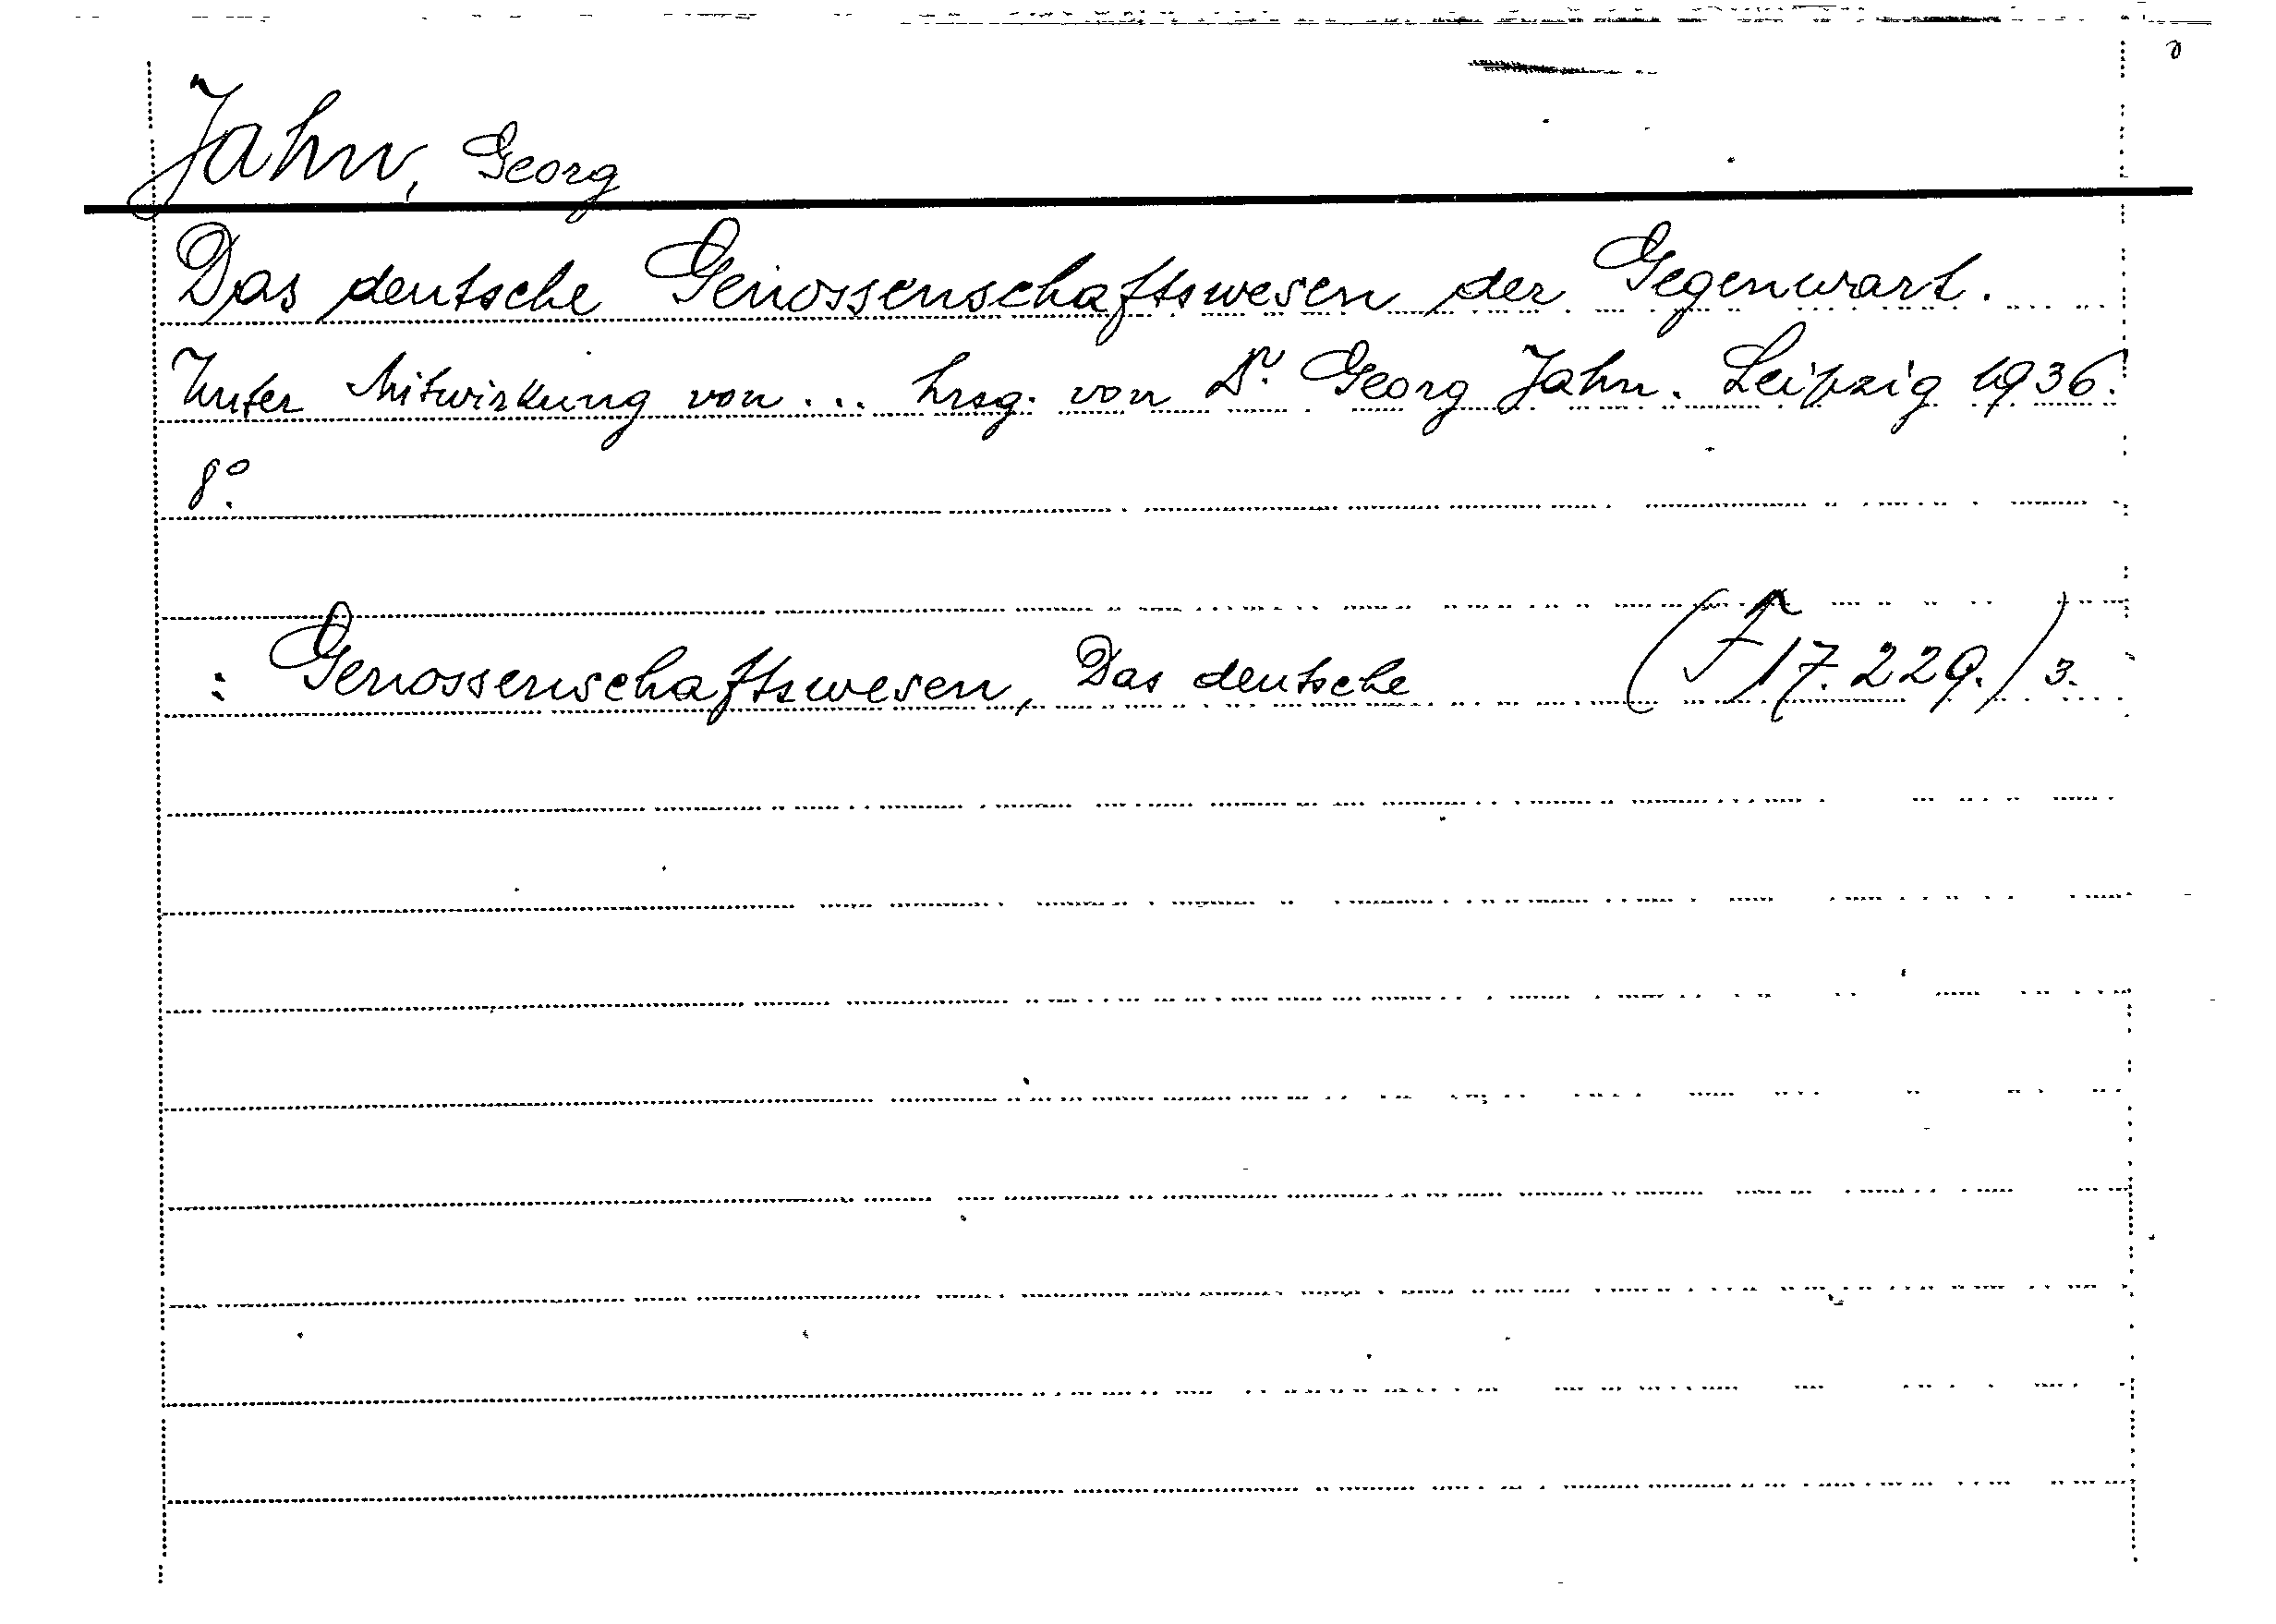 Jahn, Georg
Das deutsche Genossenschaftswesen der Gegenwart.
Unter Mitwirkung von ... hrsg. von Dr. Georg Jahn. Leipzig 1936.
8°.
: Genossenschaftswesen, Das deutsche (F 17.229.) 3.